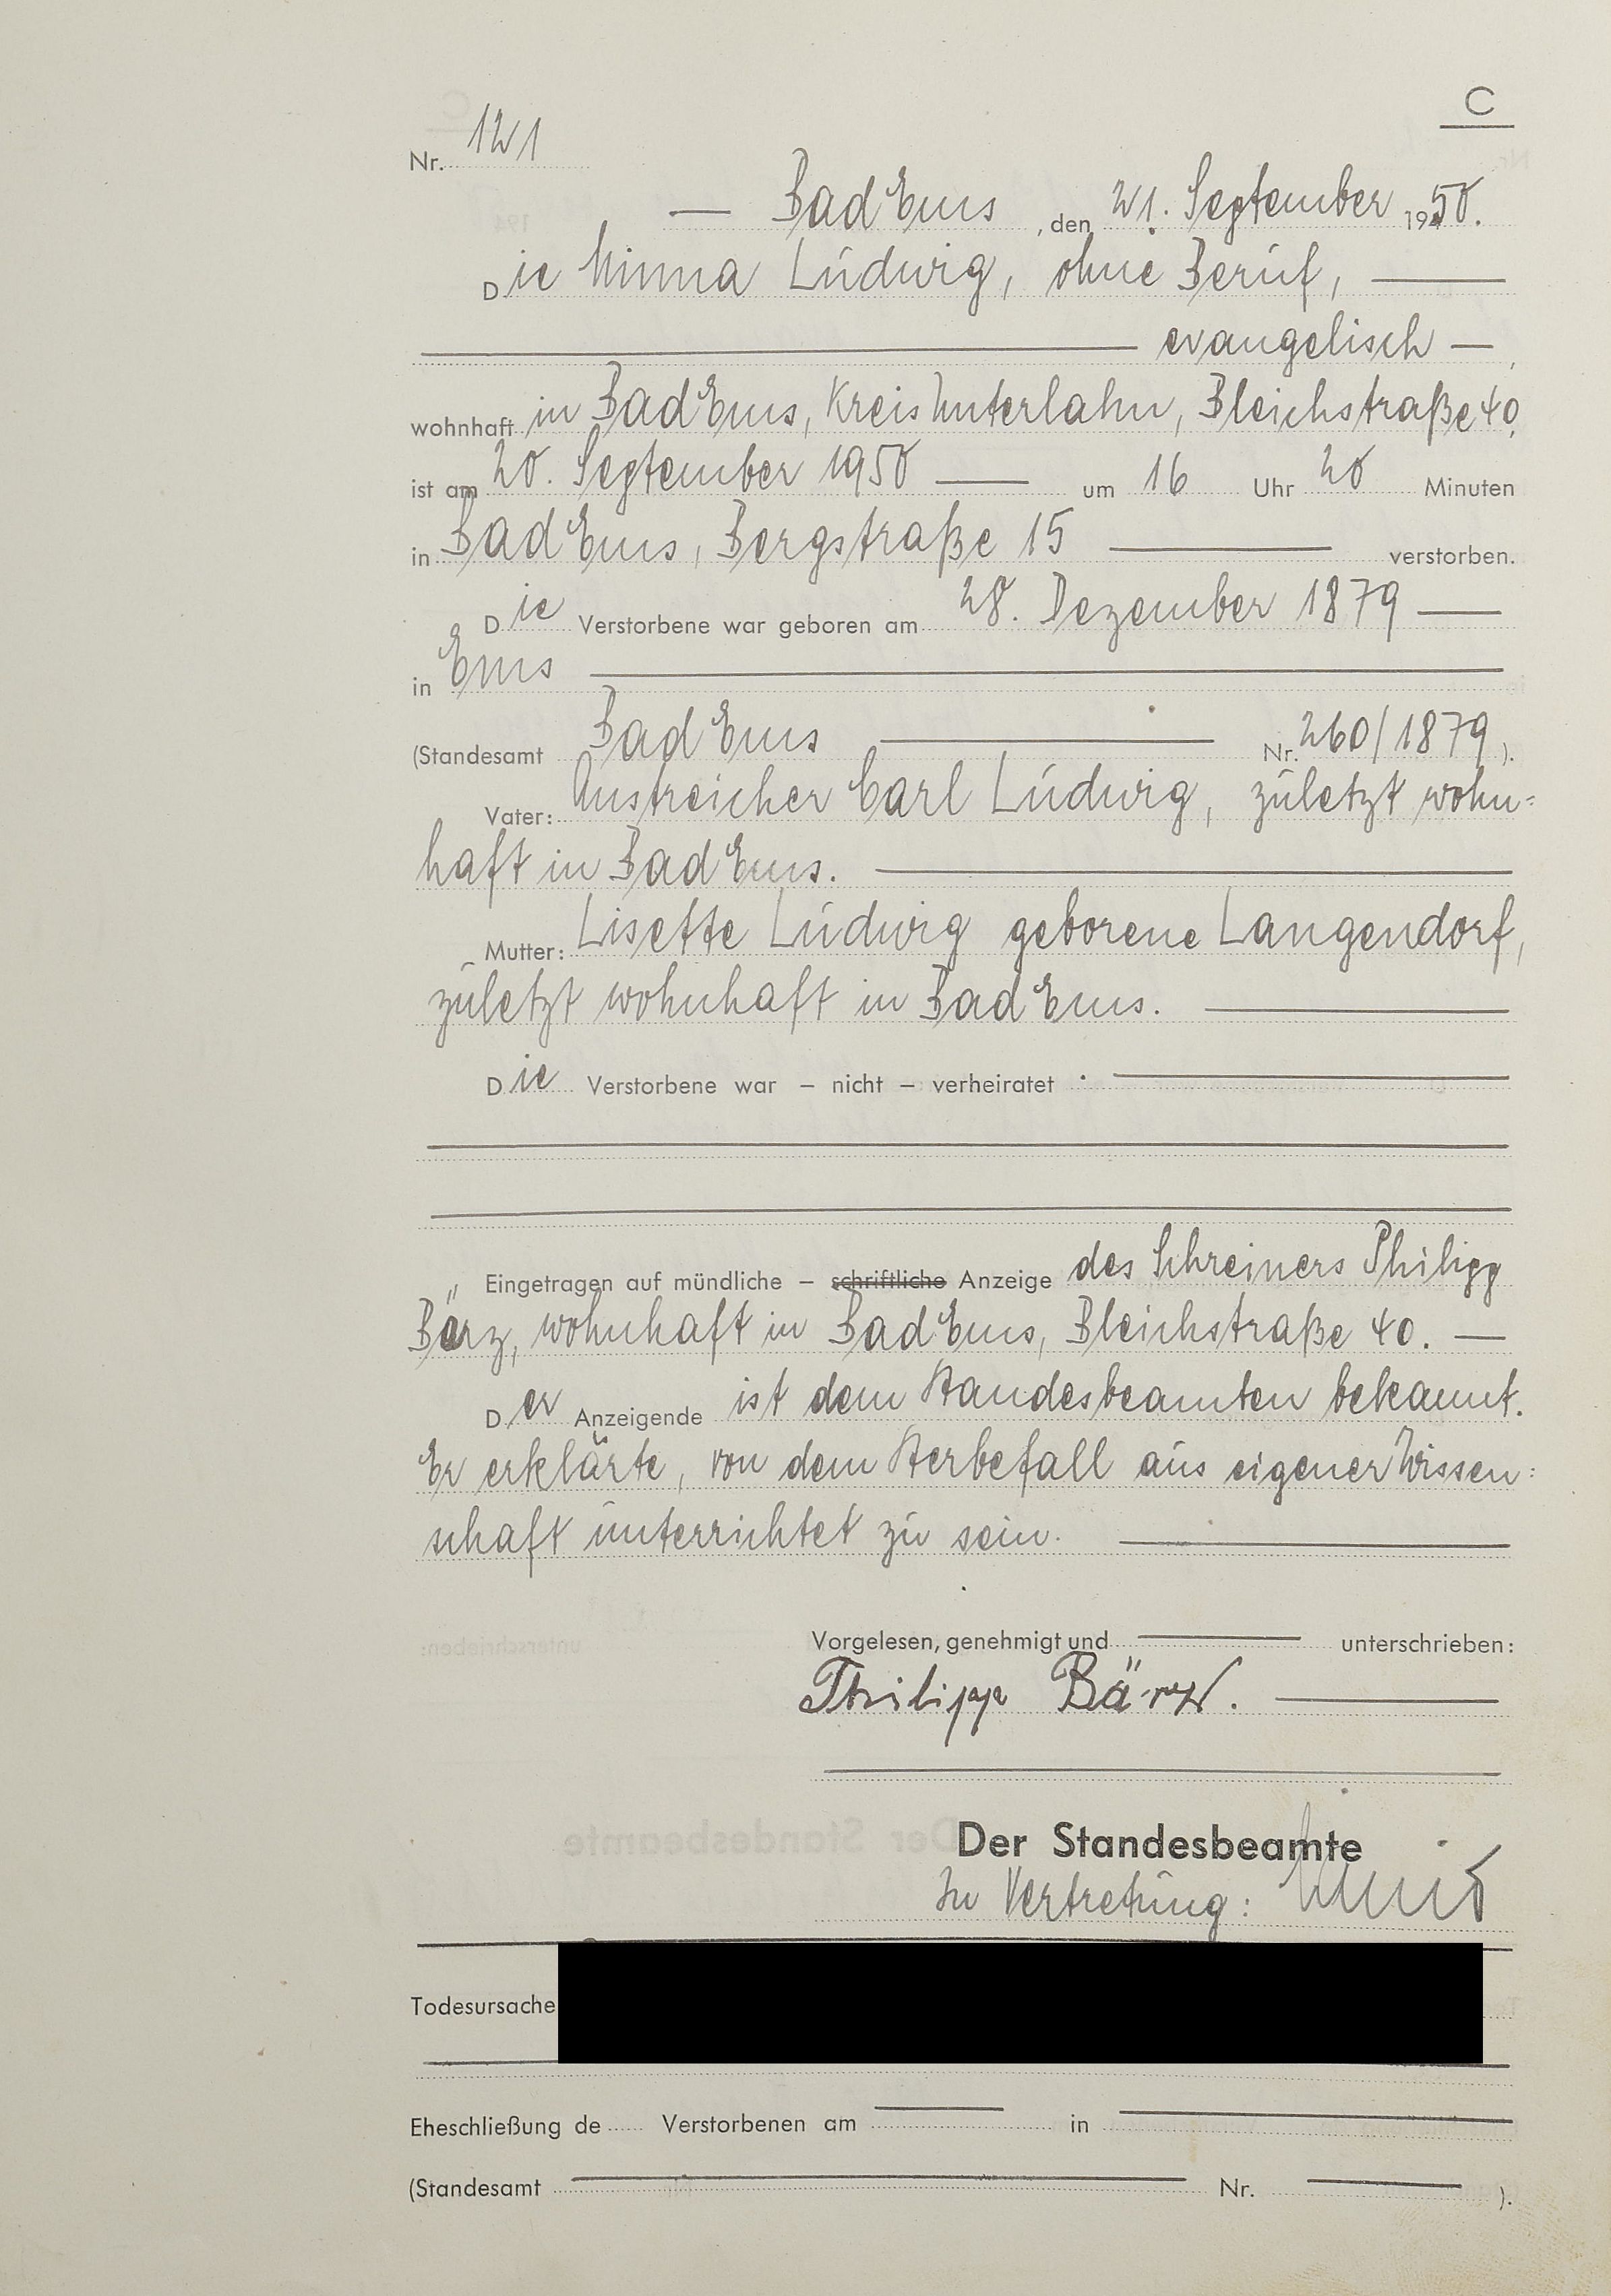 C
Nr. 121
— Bad Ems, den 21. September 1950.
Die Minna Ludwig, ohne Beruf, —
— evangelisch —,
wohnhaft in Bad Ems, Kreis Unterlahn, Bleichstraße 40,
ist am 20. September 1950 — um 16 Uhr 20 Minuten
in Bad Ems, Bergstraße 15 — verstorben.
Die Verstorbene war geboren am 28. Dezember 1879 —
in Ems —
(Standesamt Bad Ems — Nr. 260/1879).
Vater: Anstreicher Carl Ludwig, zuletzt wohn=
haft in Bad Ems. —
Mutter: Lisette Ludwig geborene Langendorf,
zuletzt wohnhaft in Bad Ems. —
Die Verstorbene war – nicht – verheiratet. —
Eingetragen auf mündliche – schriftliche Anzeige des Schreiners Philipp
Bärz, wohnhaft in Bad Ems, Bleichstraße 40. —
Der Anzeigende ist dem Standesbeamten bekannt.
Er erklärte, von dem Sterbefall aus eigener Wissen=
schaft unterrichtet zu sein. —
Vorgelesen, genehmigt und — unterschrieben:
Philipp Bärz. —
Der Standesbeamte
In Vertretung:
Todesursache
Eheschließung de Verstorbenen am — in —
(Standesamt — Nr. — ).